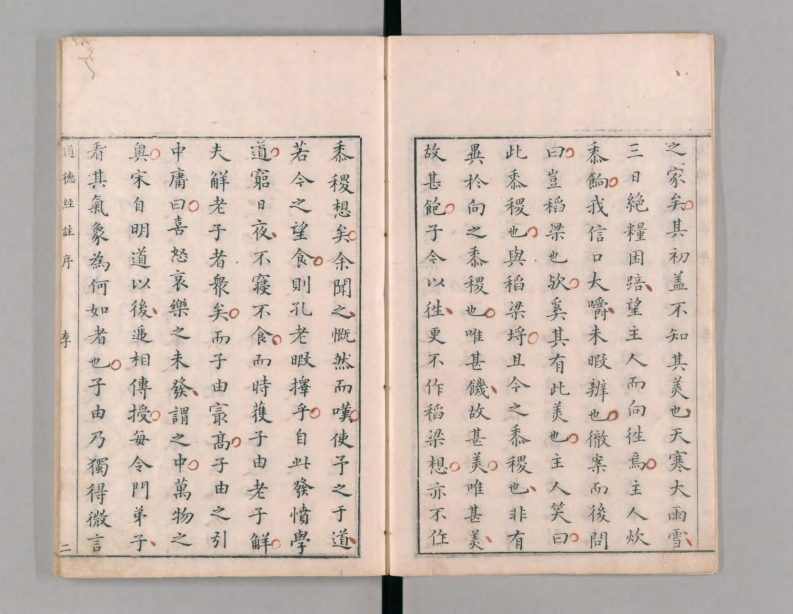 之家矣其初蓋不知其美也天寒大雨雪
三日絶糧困踣望主人而向徃焉主人炊
黍餉我信口大嚼未暇辨也徹案而後問
曰豈稻梁也欤奚其有此美也主人笑曰
此黍稷也與稻梁埒且今之黍稷也非有
異扵向之黍稷也唯甚饑故甚美唯甚美
故甚飽子今以徃更不作稻梁想亦不作
黍稷想矣余聞之慨然而嘆使予之于道
若今之望食則孔老暇擇乎自此發憤學
道窮日夜不寢不食而時獲子由老子解
夫解老子者衆矣而子由冣髙子由之引
中庸曰喜怒哀樂之未發謂之中萬物之
奥宋自明道以後逓相傳授每令門弟子
看其氣象為何如者也子由乃獨得微言
道德經註序
李
二